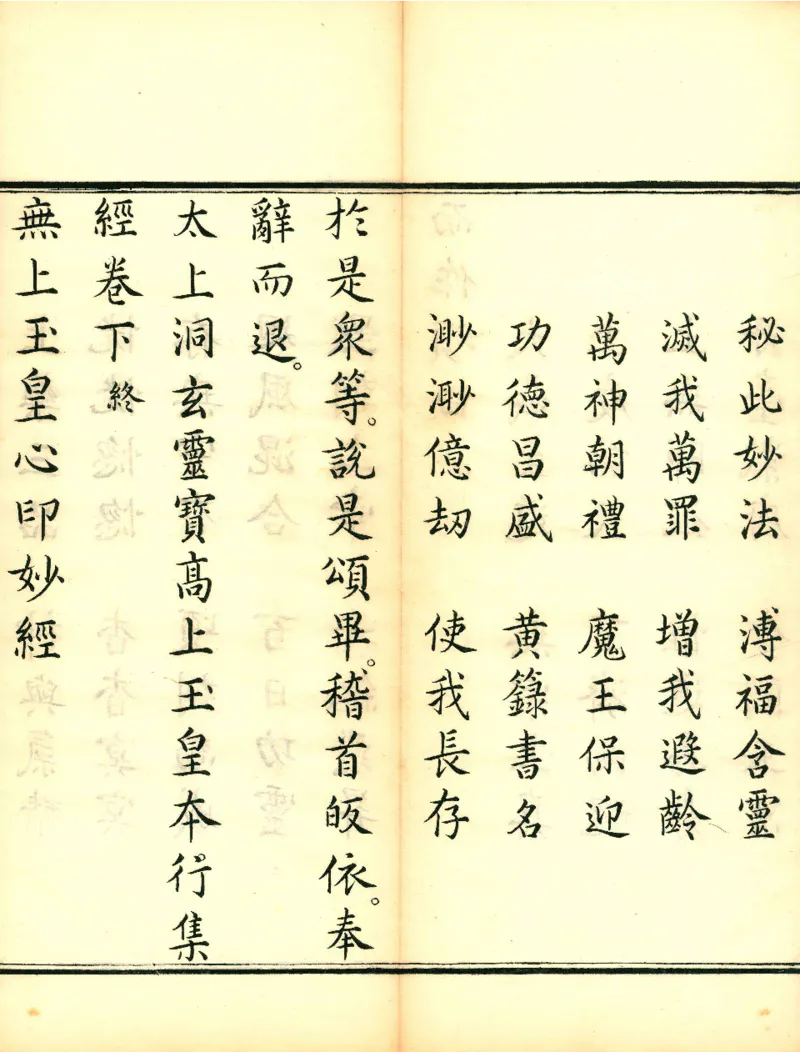 秘此妙法　溥福含靈
滅我萬罪　增我遐齡
萬神朝禮　魔王保迎
功德昌盛　黄籙書名
渺渺億劫　使我長存
於是衆等。說是頌畢。稽首皈依。奉
辭而退。
太上洞玄靈寶髙上玉皇本行集
經卷下終
無上玉皇心印妙經